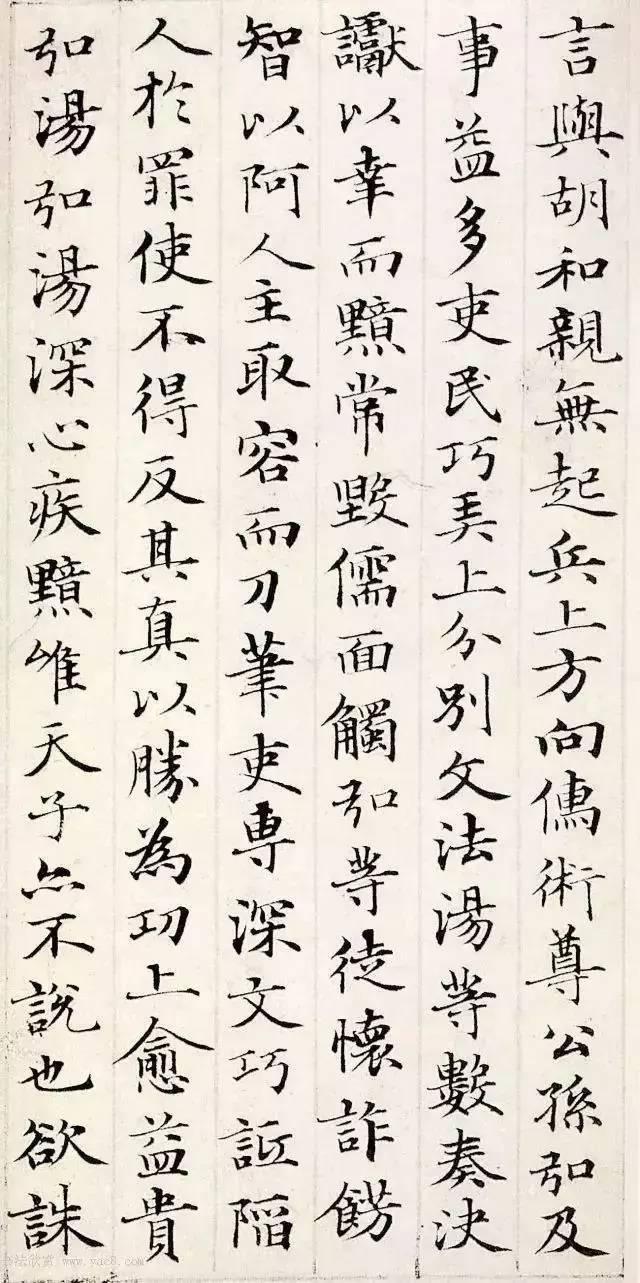 言與胡和親無起兵上方向儒術尊公孫弘及
事益多吏民巧弄上分別文法湯等數奏決
讞以幸而黯常毀儒面觸弘等徒懷詐飾
智以阿人主取容而刀筆吏專深文巧詆陷
人於罪使不得反其真以勝為功上愈益貴
弘湯弘湯深心疾黯唯天子亦不說也欲誅
法欣赏 www.yac8.com